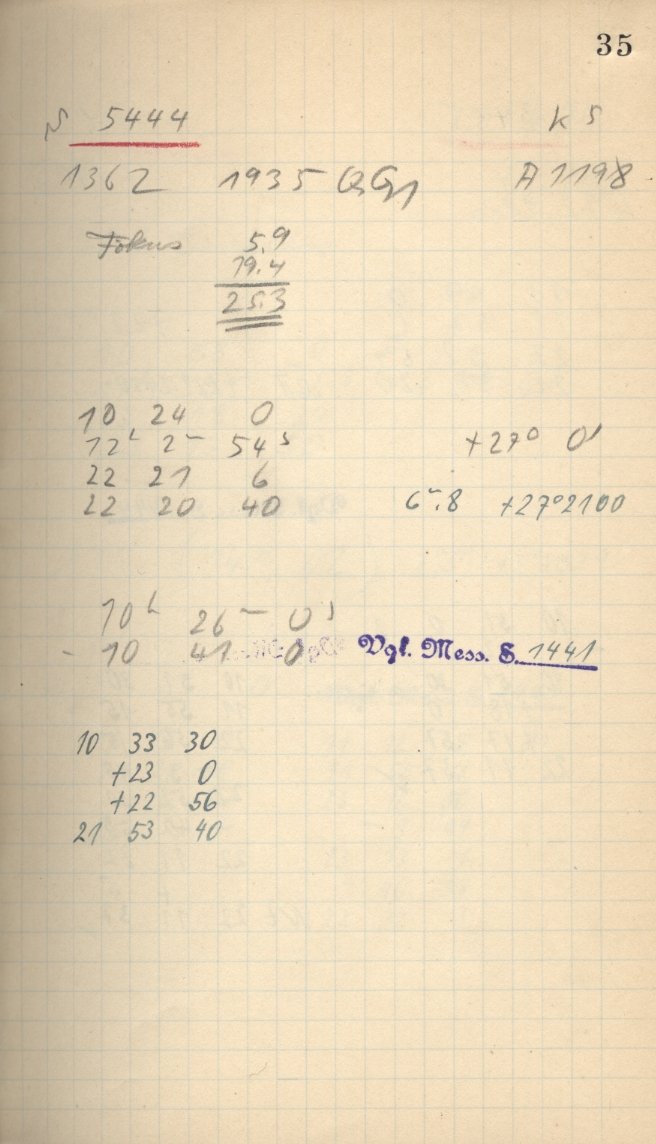 35
5444 K S
1362 1935 QG1 A 1198
Fokus 5.9
19.4
25.3
10 24 0
12h 2m 54s +27° 0'
22 21 6
22 20 40 6m.8 +27°2100
10h 26m 0s
- 10 41 0 Vgl. Mess. S. 1441
10 33 30
+23 0
+22 56
21 53 40